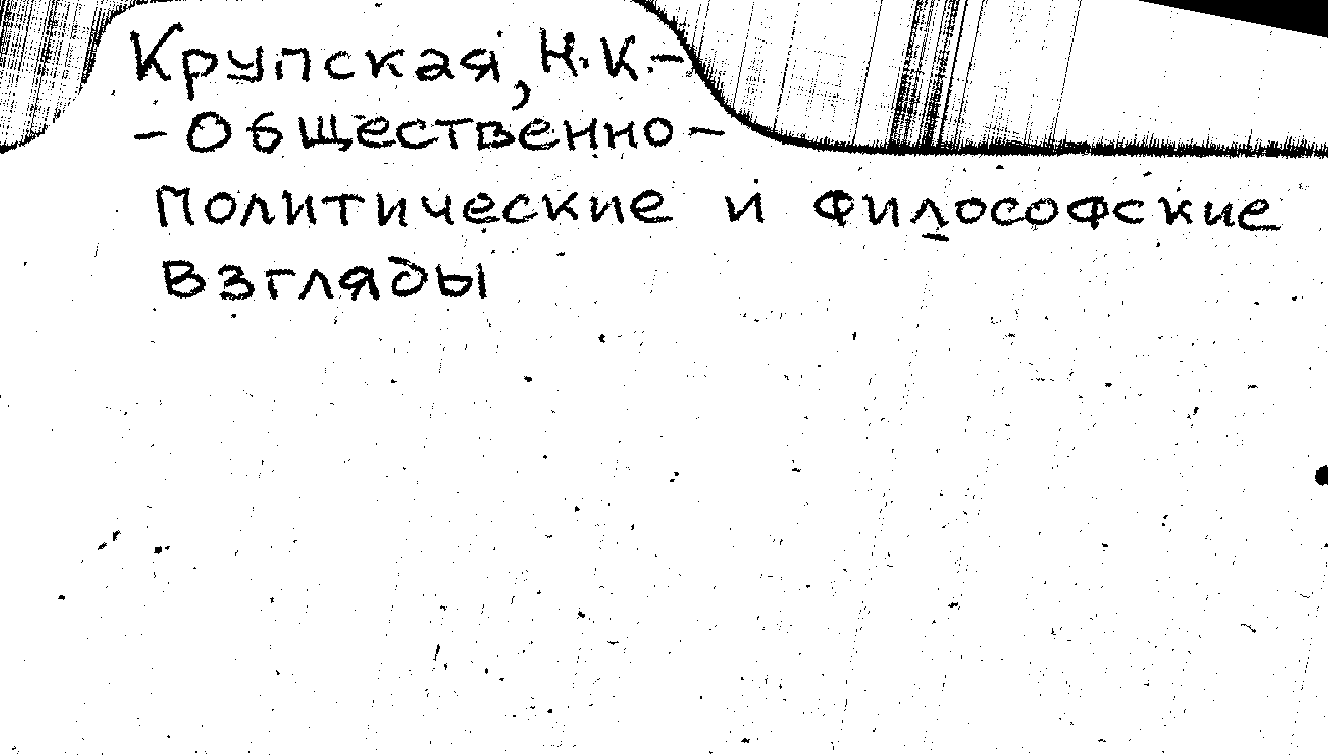 Крупская, Н.К.-
- Общественно -
политические и философские
взгляды